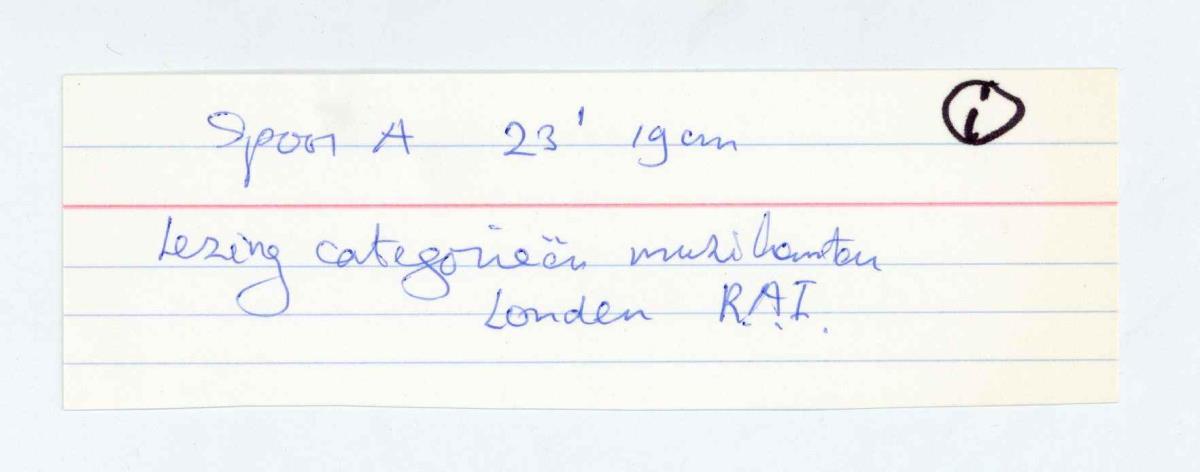 Spoor A 23' 19 cm
Lezing categorieën muzikanten
Londen R.A.I.